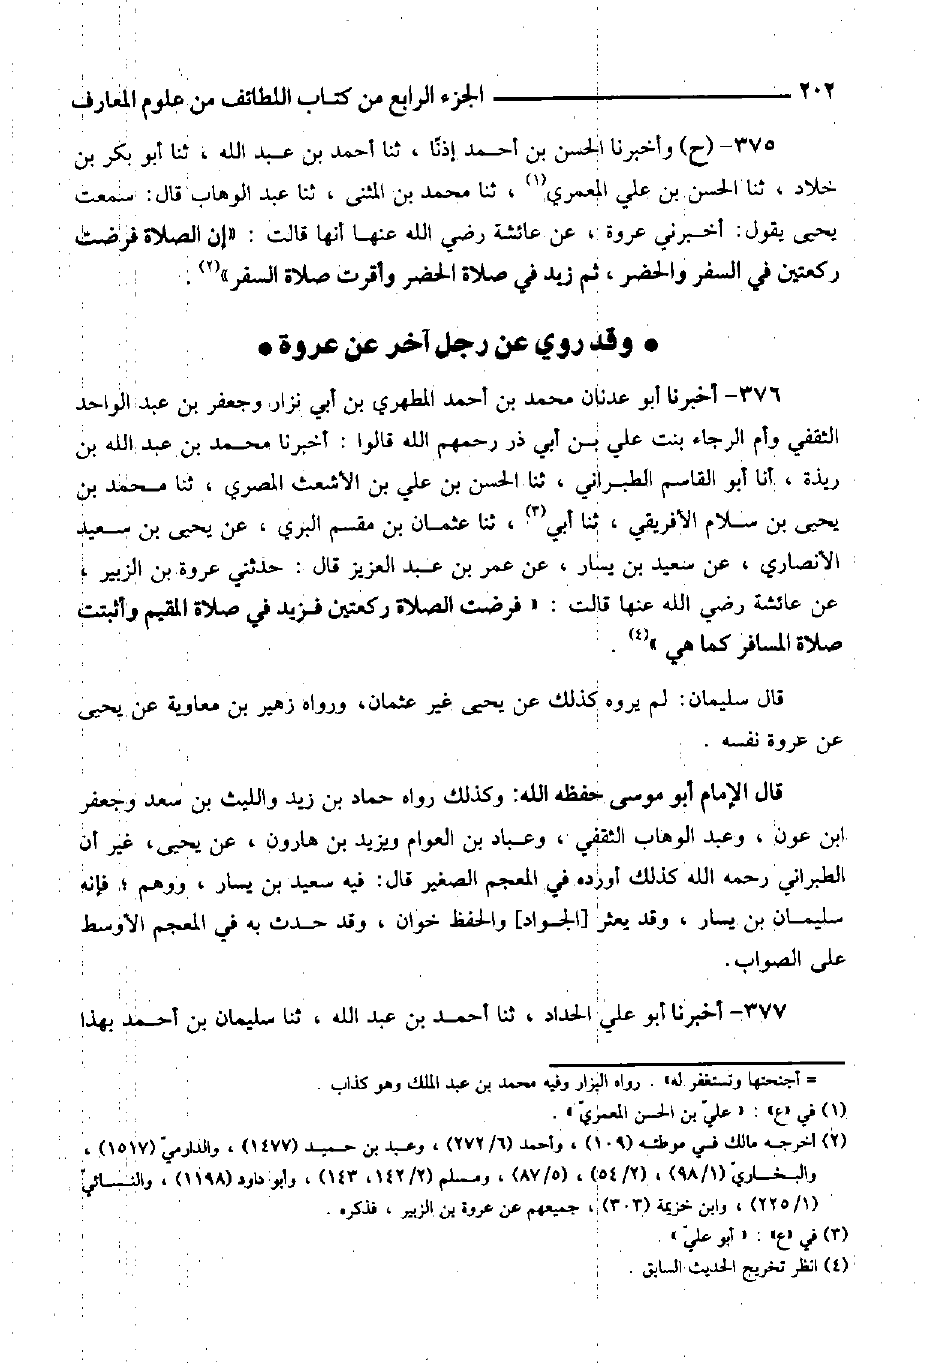 ٢٠٢ ـــــــــــــ الجزء الرابع من كتاب اللطائف من علوم المعارف
٣٧٥- (ح) وأخبرنا الحسن بن أحمد إذنًا ، ثنا أحمد بن عبد الله ، ثنا أبو بكر بن
خلاد ، ثنا الحسن بن علي المعمري(١) ، ثنا محمد بن المثنى ، ثنا عبد الوهاب قال: سمعت
يحيى يقول: أخبرني عروة ، عن عائشة رضي الله عنها أنها قالت : «إن الصلاة فرضت
ركعتين في السفر والحضر ، ثم زيد في صلاة الحضر وأقرت صلاة السفر»(٢) .
● وقد روي عن رجل آخر عن عروة ●
٣٧٦- أخبرنا أبو عدنان محمد بن أحمد المطهري بن أبي نزار وجعفر بن عبد الواحد
الثقفي وأم الرجاء بنت علي بن أبي ذر رحمهم الله قالوا : أخبرنا محمد بن عبد الله بن
ريذة ، أنا أبو القاسم الطبراني ، ثنا الحسن بن علي بن الأشعث المصري ، ثنا محمد بن
يحيى بن سلام الأفريقي ، ثنا أبي(٣) ، ثنا عثمان بن مقسم البري ، عن يحيى بن سعيد
الأنصاري ، عن سعيد بن يسار ، عن عمر بن عبد العزيز قال : حدثني عروة بن الزبير ،
عن عائشة رضي الله عنها قالت : « فرضت الصلاة ركعتين فزيد في صلاة المقيم وأثبتت
صلاة المسافر كما هي »(٤) .
قال سليمان: لم يروه كذلك عن يحيى غير عثمان، ورواه زهير بن معاوية عن يحيى
عن عروة نفسه .
قال الإمام أبو موسى حفظه الله: وكذلك رواه حماد بن زيد والليث بن سعد وجعفر
ابن عون ، وعبد الوهاب الثقفي ، وعباد بن العوام ويزيد بن هارون ، عن يحيى، غير أن
الطبراني رحمه الله كذلك أورده في المعجم الصغير قال: فيه سعيد بن يسار ، ووهم ؛ فإنه
سليمان بن يسار ، وقد يعثر [الجواد] والحفظ خوان ، وقد حدث به في المعجم الأوسط
على الصواب.
٣٧٧- أخبرنا أبو علي الحداد ، ثنا أحمد بن عبد الله ، ثنا سليمان بن أحمد بهذا
= أجنحتها وتستغفر له» . رواه البزار وفيه محمد بن عبد الملك وهو كذاب .
(١) في «ع» : « عليّ بن الحسن المعمريّ» .
(٢) أخرجه مالك في موطئه (١٠٩) ، وأحمد (٢٧٢/٦) ، وعبد بن حميد (١٤٧٧) ، والدارميّ (١٥١٧) ،
والبخاريّ (٩٨/١) ، (٥٤/٢) ، (٨٧/٥) ، ومسلم (١٤٢/٢، ١٤٣) ، وأبو داود (١١٩٨) ، والنسائيّ
(٢٢٥/١) ، وابن خزيمة (٣٠٣) ، جميعهم عن عروة بن الزبير ، فذكره .
(٣) في «ع» : « أبو عليّ » .
(٤) انظر تخريج الحديث السابق .